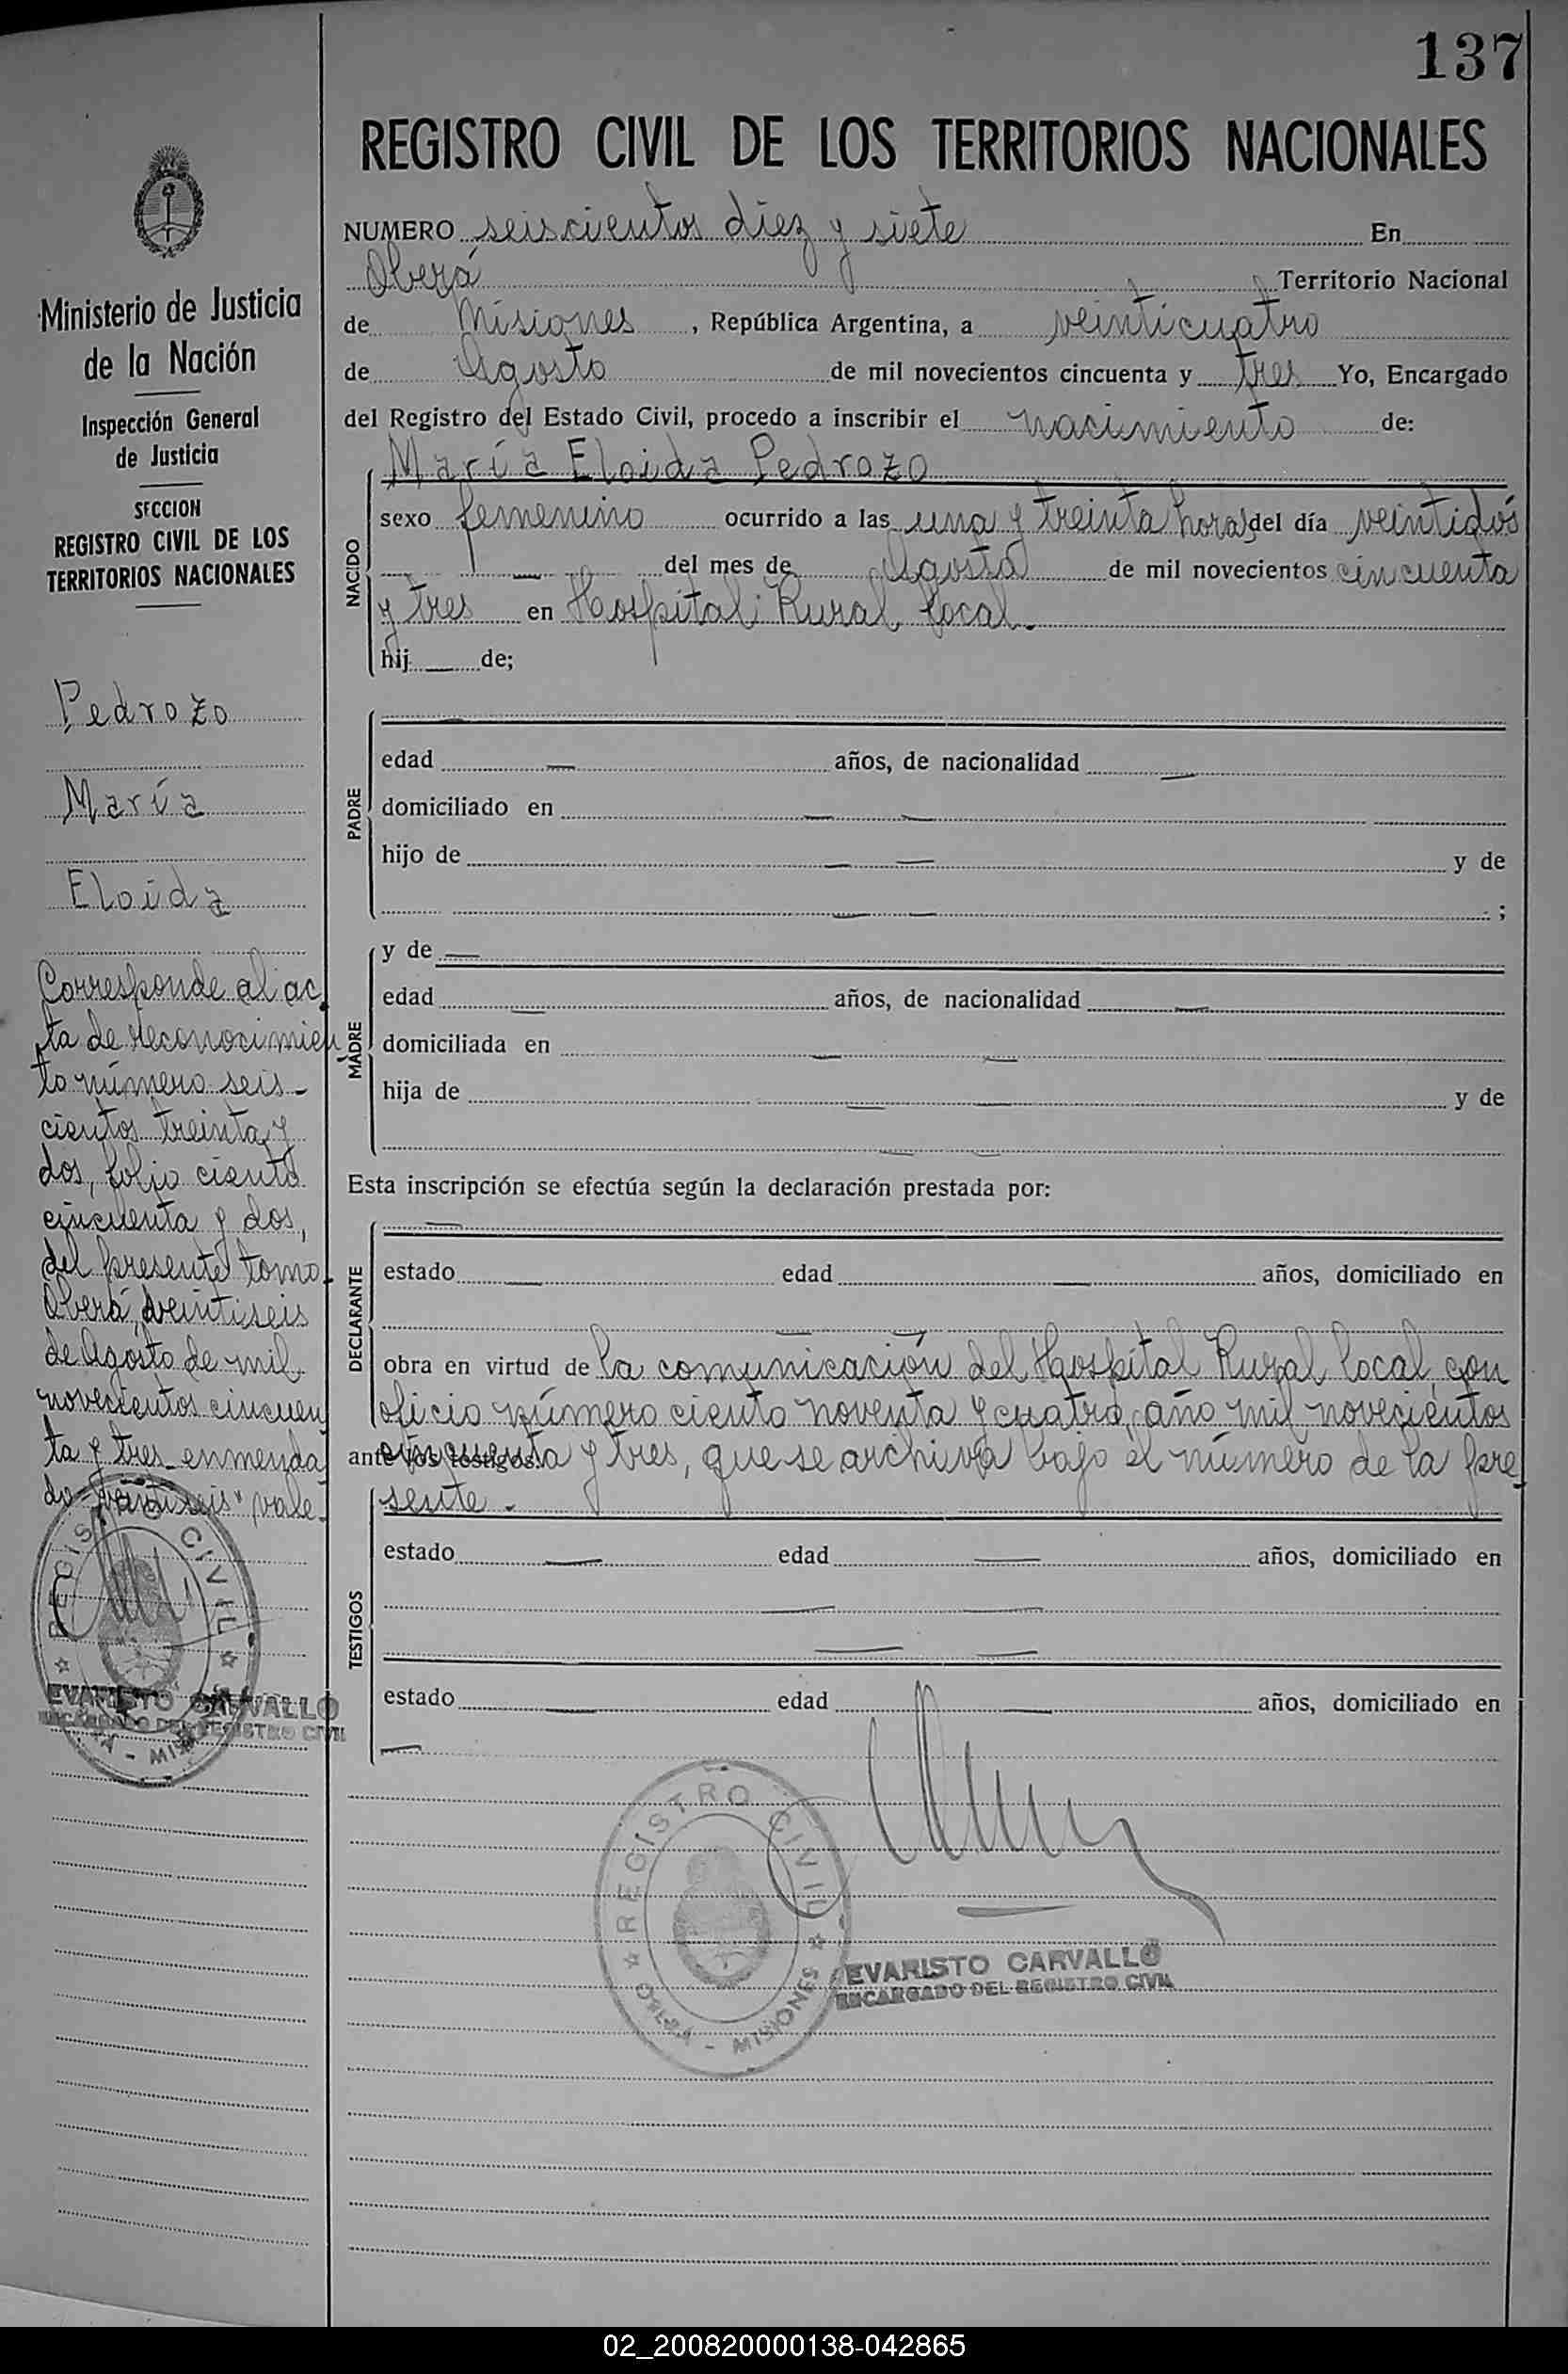 137
REGISTRO CIVIL DE LOS TERRITORIOS NACIONALES
Ministerio de Justicia
de la Nación
Inspección General
de Justicia
SECCION
REGISTRO CIVIL DE LOS
TERRITORIOS NACIONALES
Pedrozo
María
Eloida
Corresponde al ac
ta de reconocimien
to número seis-
cientos treinta y
dos, folio ciento
cincuenta y dos,
del presente tomo.
Oberá, veintiseis
de Agosto de mil
novecientos cincuen
ta y tres_enmenda
do "veintiseis" vale.
REGISTRO CIVIL
EVARISTO CARVALLO
ENCARGADO DEL REGISTRO CIVIL
NUMERO seiscientos diez y siete En
Oberá Territorio Nacional
de Misiones, República Argentina, a veinticuatro
de Agosto de mil novecientos cincuenta y tres Yo, Encargado
del Registro del Estado Civil, procedo a inscribir el nacimiento de:
NACIDO
María Eloida Pedrozo
sexo femenino ocurrido a las una y treinta horas del día veintidós
del mes de Agosto de mil novecientos cincuenta
y tres en Hospital Rural local.
hij — de;
PADRE
edad — años, de nacionalidad —
domiciliado en — —
hijo de — — y de
— — ;
MADRE
y de —
edad — años, de nacionalidad —
domiciliada en — —
hija de — — y de
— —
Esta inscripción se efectúa según la declaración prestada por:
DECLARANTE
—
estado — edad — años, domiciliado en
— —
obra en virtud de la comunicación del Hospital Rural local, con
oficio número ciento noventa y cuatro, año mil novecientos
ante los testigos: cincuenta y tres, que se archiva bajo el número de la pre
sente.
TESTIGOS
estado — edad — años, domiciliado en
— —
— —
estado — edad — años, domiciliado en
—
REGISTRO CIVIL
OBERA - MISIONES
EVARISTO CARVALLO
ENCARGADO DEL REGISTRO CIVIL
02_200820000138-042865